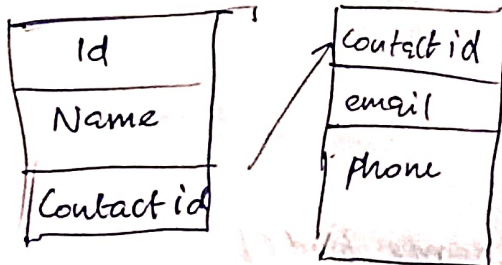 Id
Name
Contact id
Contact id
email
phone